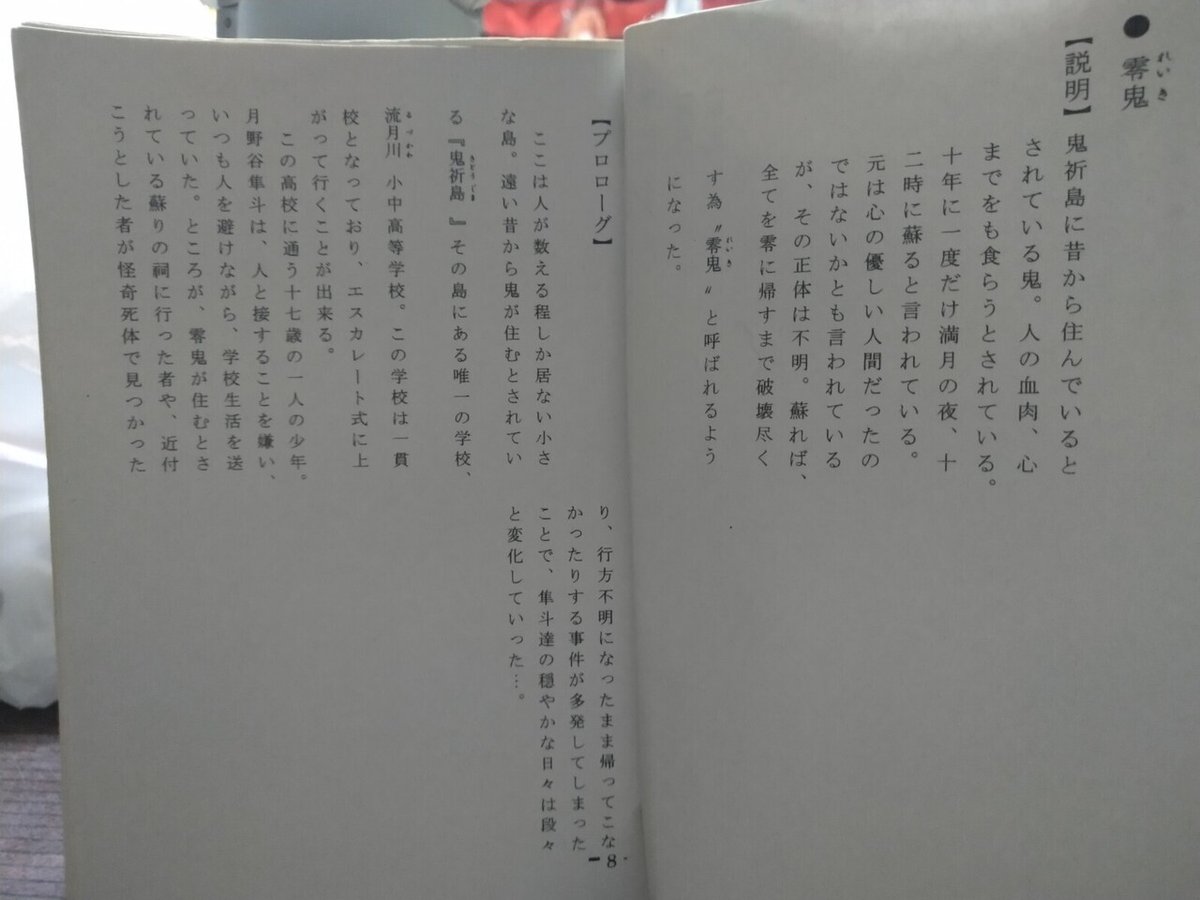 ● 零鬼
れいき
【説明】鬼祈島に昔から住んでいると
されている鬼。人の血肉、心
までをも食らうとされている。
十年に一度だけ満月の夜、十
二時に蘇ると言われている。
元は心の優しい人間だったの
ではないかとも言われている
が、その正体は不明。蘇れば、
全てを零に帰すまで破壊尽く
す為〝零鬼〟と呼ばれるよう
れいき
になった。
【プロローグ】
ここは人が数える程しか居ない小さ
な島。遠い昔から鬼が住むとされてい
る『鬼祈島』その島にある唯一の学校、
流月川 小中高等学校。この学校は一貫
校となっており、エスカレート式に上
がって行くことが出来る。
この高校に通う十七歳の一人の少年。
月野谷隼斗は、人と接することを嫌い、
いつも人を避けながら、学校生活を送
っていた。ところが、零鬼が住むとさ
れている蘇りの祠に行った者や、近付
こうとした者が怪奇死体で見つかった
り、行方不明になったまま帰ってこな
かったりする事件が多発してしまった
ことで、隼斗達の穏やかな日々は段々
と変化していった…。
-8-